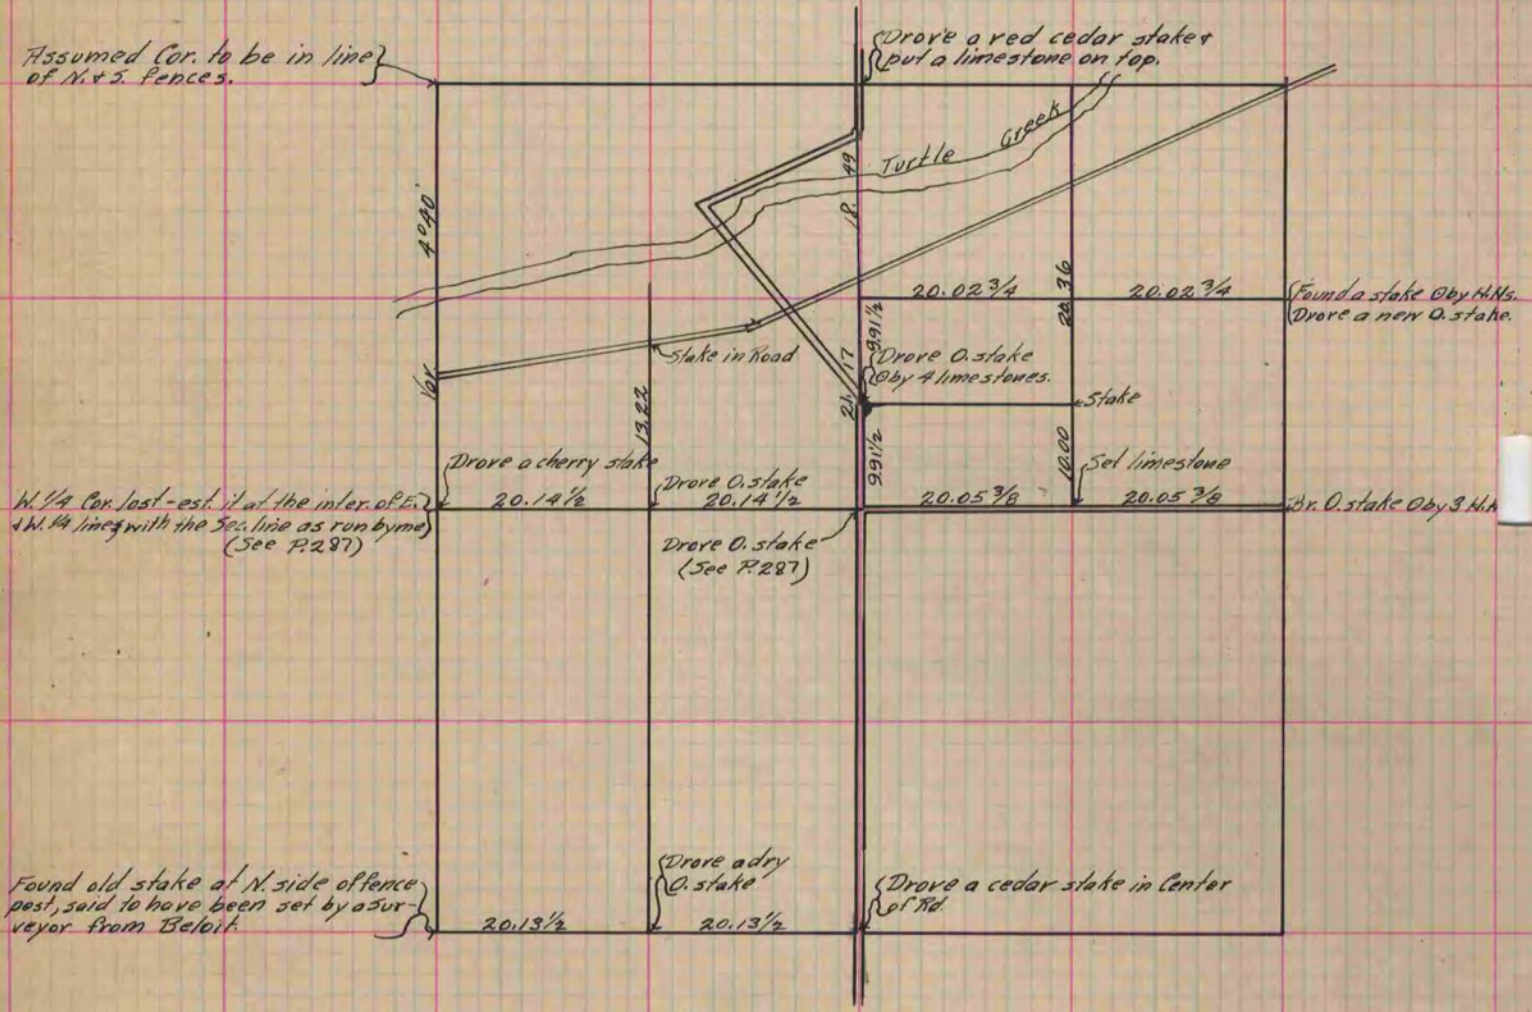 Assumed Cor. to be in line
of N. & S. fences.
Drove a red cedar stake &
put a limestone on top.
Turtle Creek
4° 40'
Var
18. 49
20.02 3/4
20.36
20.02 3/4
Found a stake @ by H.Ns.
Drove a new O. stake.
Stake in Road
9.91 1/2
Drove O. stake
@ by 4 limestones.
21. 17
Stake
13.22
9.91 1/2
10.00
Drove a cherry stake
Drove O. stake
Set limestone
W. 1/4 Cor. lost - est. it at the inter. of E.
& W. 1/4 lines with the Sec. line as run by me
(See P. 287)
20.14 1/2
20.14 1/2
20.05 3/8
20.05 3/8
Br. O. stake @ by 3
Drove O. stake
(See P. 287)
Found old stake at N. side of fence
post, said to have been set by a Sur-
veyor from Beloit.
Drove a dry
O. stake
Drove a cedar stake in Center
of Rd.
20.13 1/2
20.13 1/2